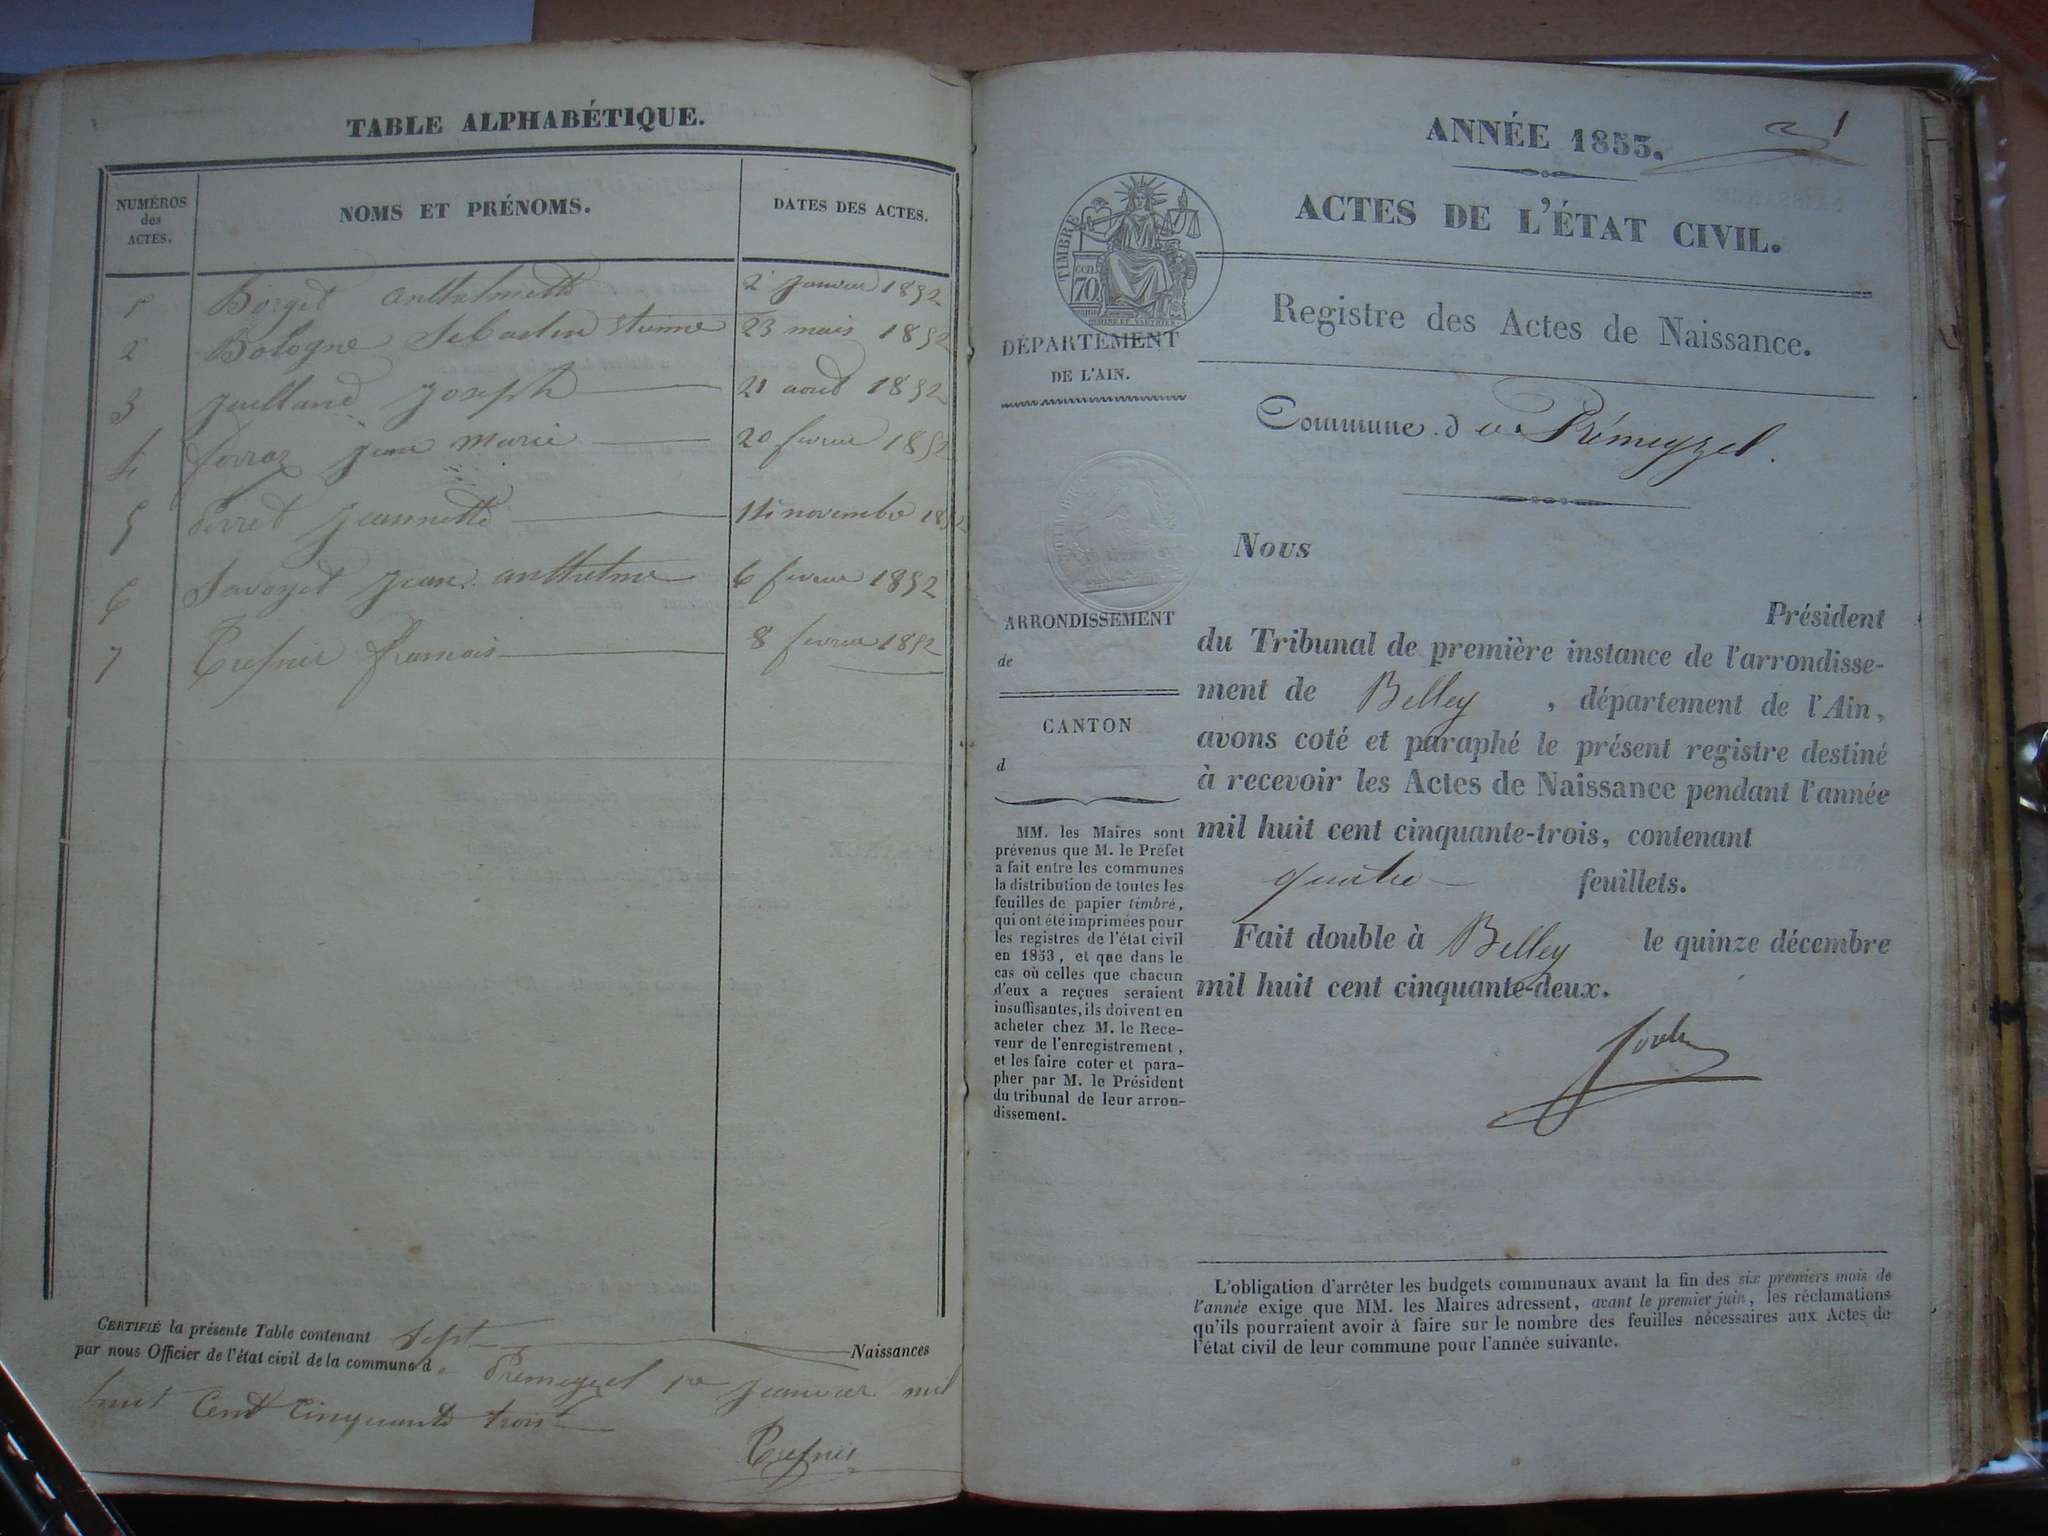 TABLE ALPHABÉTIQUE.
NUMÉROS
des
ACTES.
NOMS ET PRÉNOMS.
DATES DES ACTES.
1 Borget anthelmette 2 Janvier 1852
2 Bologne Sebastien Etienne 23 mais 1852
3 Juilland Joseph 21 aoud 1852
4 ferraz jean marie 20 fevrier 1852
5 Perret Jeannette 14 novembre 1852
6 Savoyet Jean anthelme 6 fevrier 1852
7 françois 8 fevrier 1852
CERTIFIÉ la présente Table contenant sept Naissances
par nous Officier de l'état civil de la commune d. Prémeyzel 1er Janvier mil
huit Cent Cinquante trois
ANNÉE 1853.
1
ACTES DE L'ÉTAT CIVIL.
Registre des Actes de Naissance.
TIMBRE
cen.
70
DÉPARTEMENT
DE L'AIN.
Commune de Prémeyzel.
Nous
Président
du Tribunal de première instance de l'arrondisse-
ment de Belley, département de l'Ain,
avons coté et paraphé le présent registre destiné
à recevoir les Actes de Naissance pendant l'année
mil huit cent cinquante-trois, contenant
quatre feuillets.
Fait double à Belley le quinze décembre
mil huit cent cinquante-deux.
ARRONDISSEMENT
de
CANTON
d
MM. les Maires sont
prévenus que M. le Préfet
a fait entre les communes
la distribution de toutes les
feuilles de papier timbré,
qui ont été imprimées pour
les registres de l'état civil
en 1853, et que dans le
cas où celles que chacun
d'eux a reçues seraient
insuffisantes, ils doivent en
acheter chez M. le Rece-
veur de l'enregistrement,
et les faire coter et para-
pher par M. le Président
du tribunal de leur arron-
dissement.
L'obligation d'arrêter les budgets communaux avant la fin des six premiers mois de
l'année exige que MM. les Maires adressent, avant le premier juin, les réclamations
qu'ils pourraient avoir à faire sur le nombre des feuilles nécessaires aux Actes de
l'état civil de leur commune pour l'année suivante.